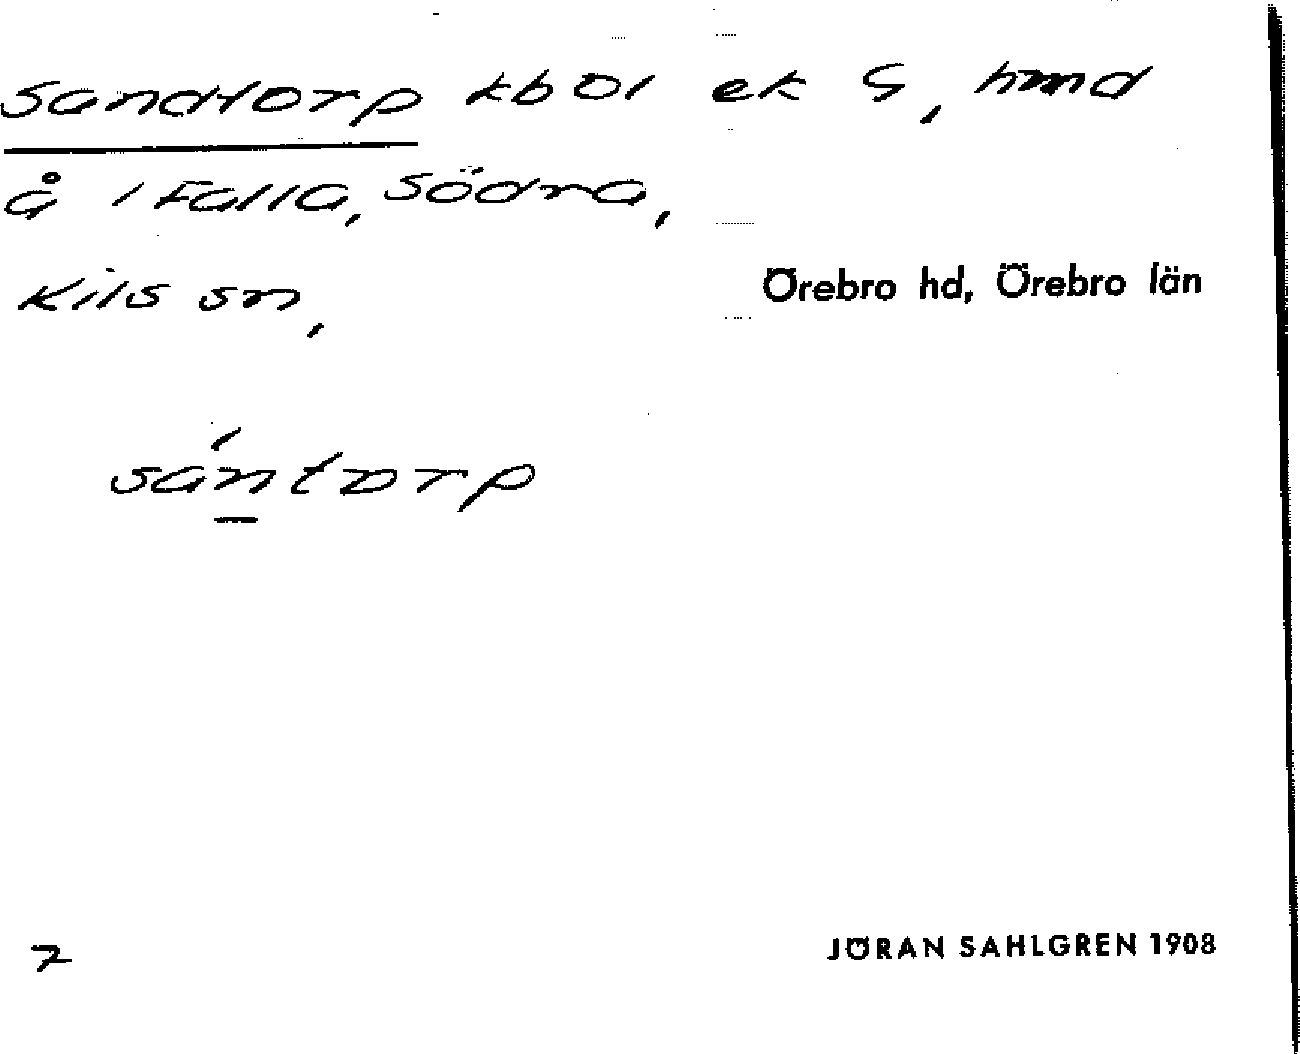 Sandtorp kbol ek S, hmd
å 1 Falla, Södra,
Kils sn,
Örebro hd, Örebro län
sántorp
7
JÖRAN SAHLGREN 1908